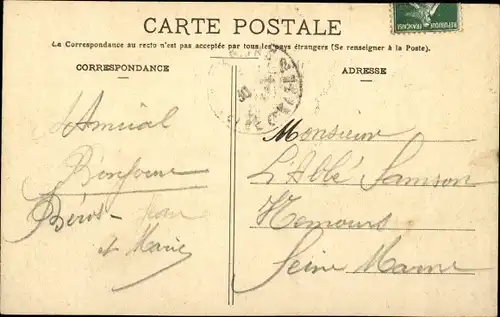 CARTE POSTALE
La Correspondance au recto n'est pas acceptée par tous les pays étrangers (Se renseigner à la Poste).
CORRESPONDANCE
ADRESSE
Amical
Bonjour
Jean
et Marie
Monsieur
L'Abbé Samson
Nemours
Seine Marne